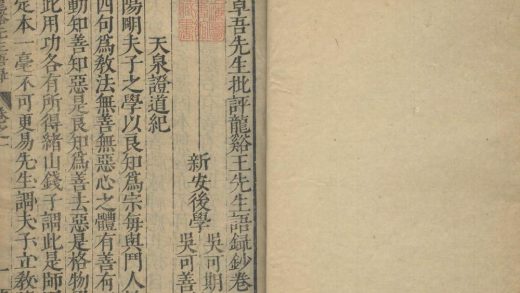 卓吾先生批評龍谿王先生語録鈔卷
新安後學
吳可期
吳可善
天泉證道紀
陽明夫子之學以良知為宗每與門人
四句為教法無善無惡心之體有善有
動知善知惡是良知為善去惡是格物
此用功各有所得緒山錢子謂此是師
定本一毫不可更易先生謂夫子立教